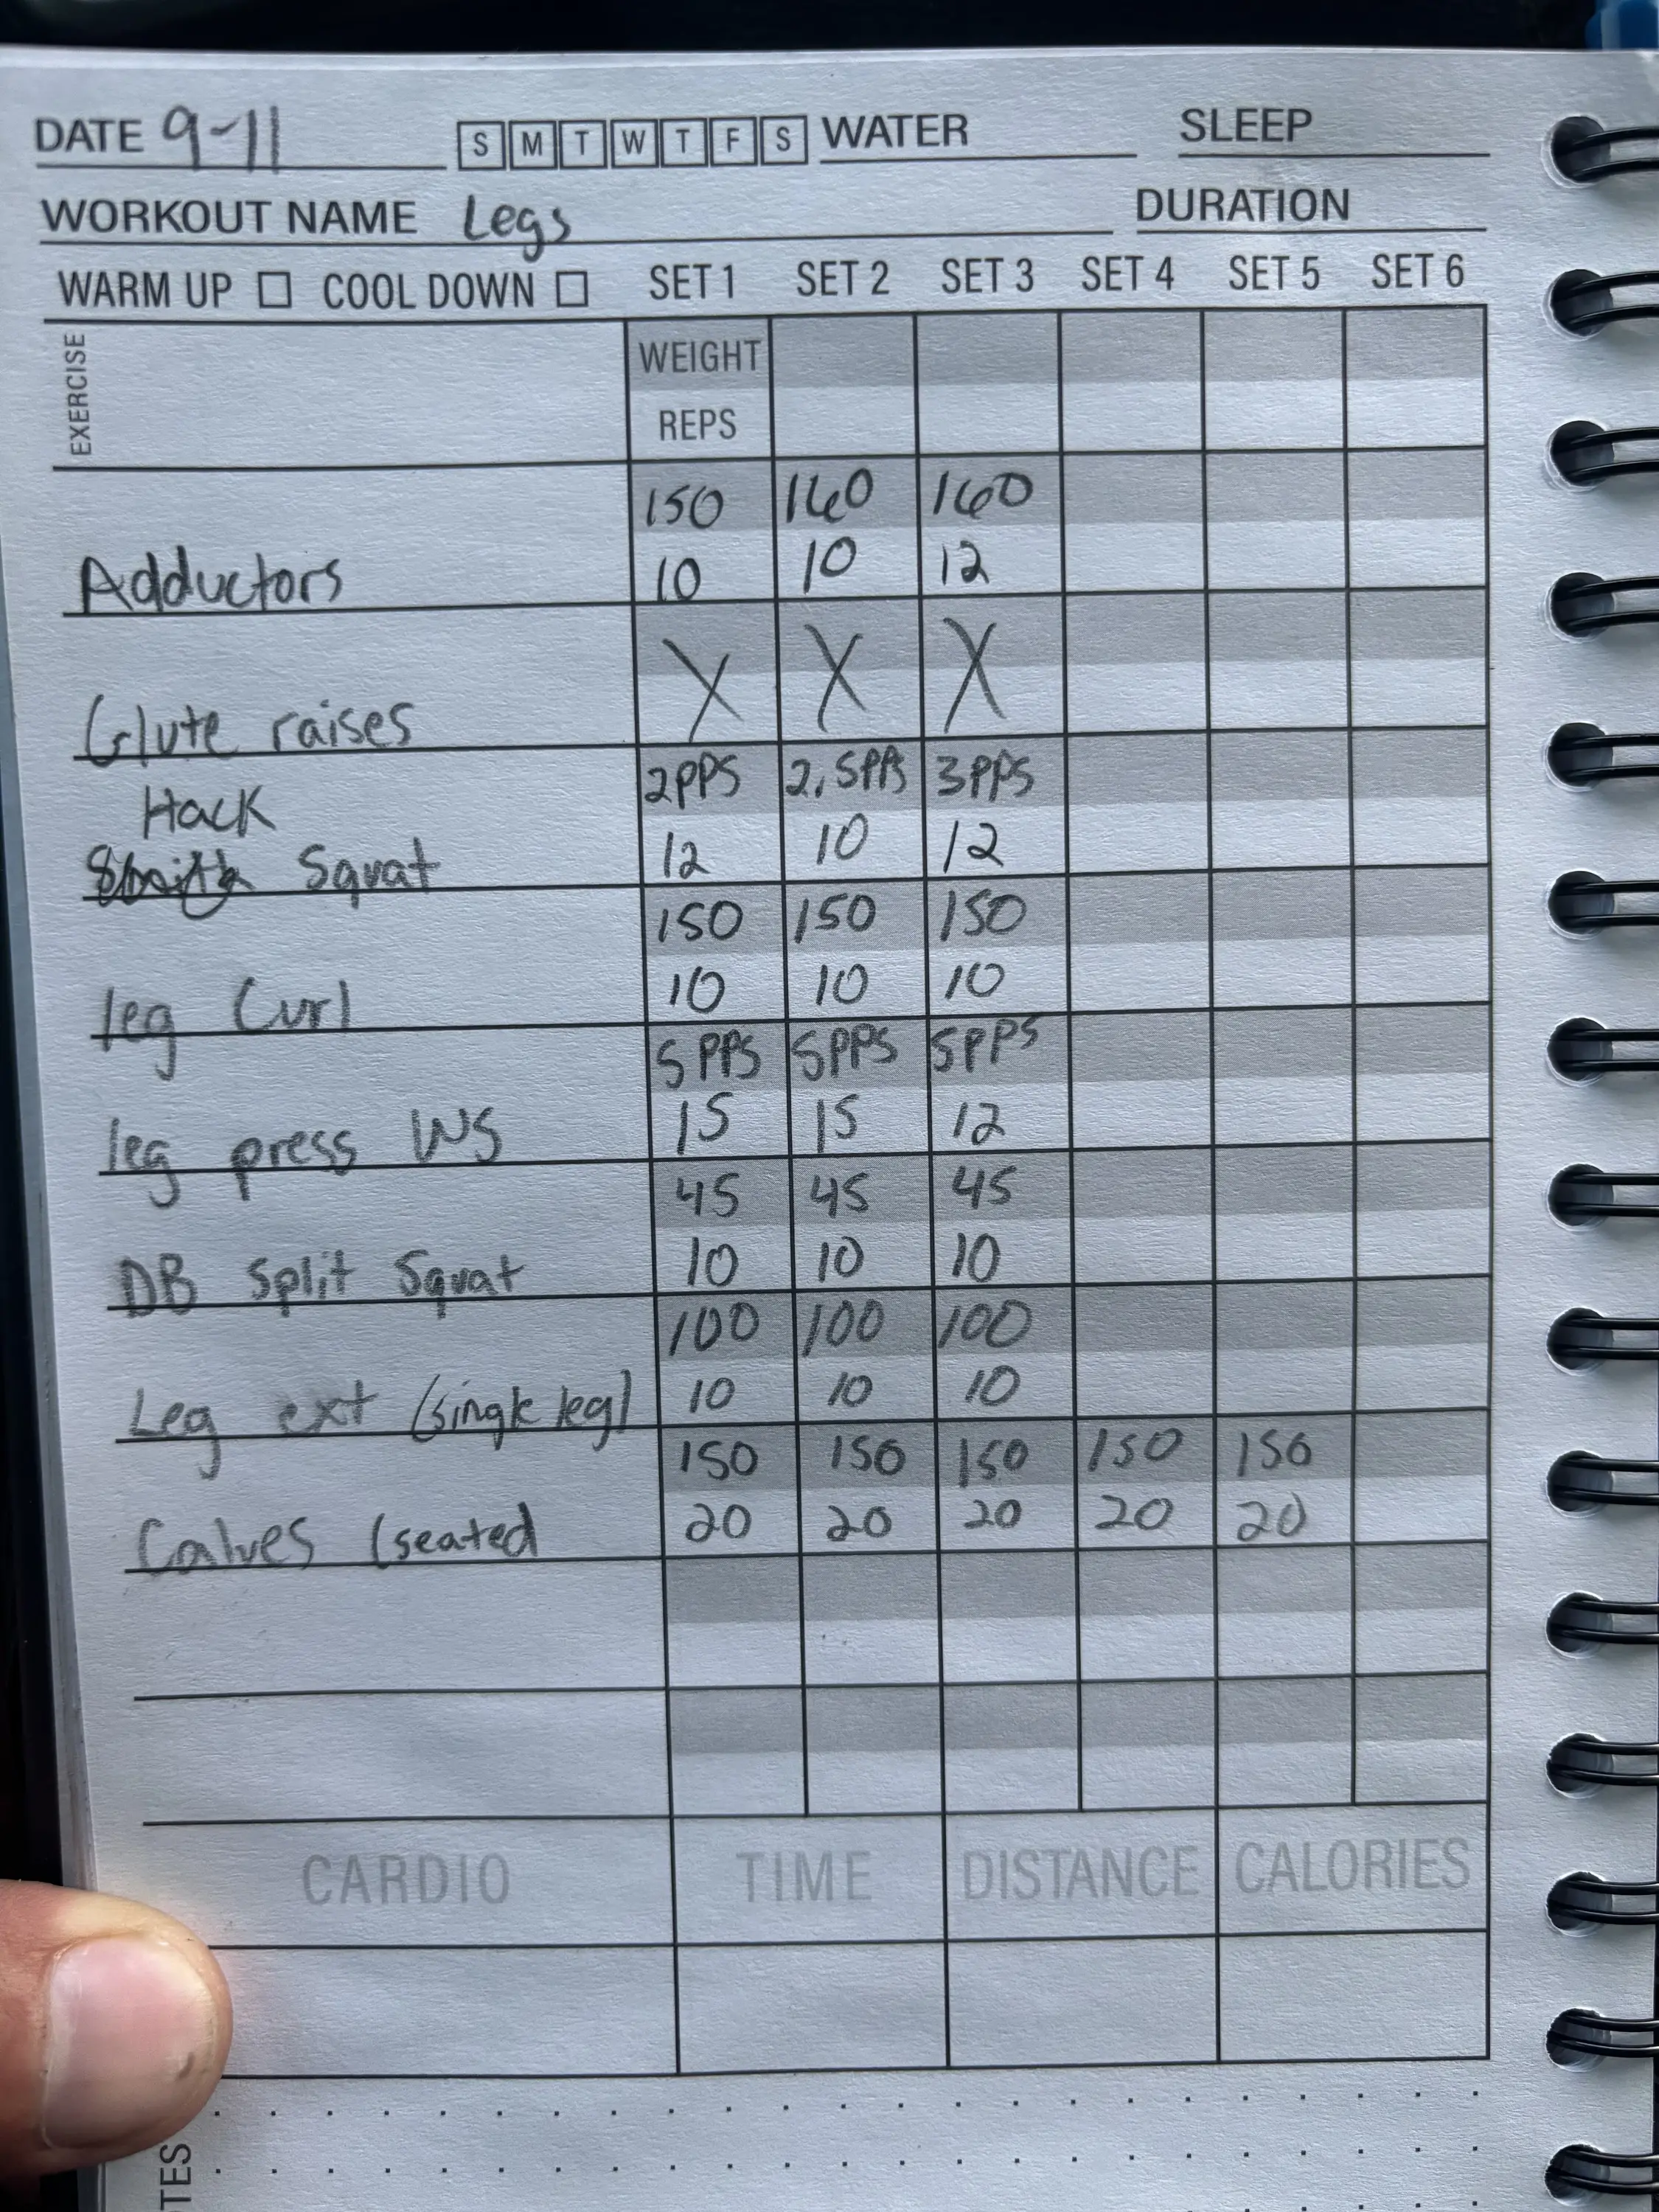 DATE 9-11 S M T W T F S WATER SLEEP
WORKOUT NAME Legs DURATION
WARM UP COOL DOWN SET 1 SET 2 SET 3 SET 4 SET 5 SET 6
EXERCISE
WEIGHT
REPS
150 160 160
Adductors 10 10 12
Glute raises X X X
2PPS 2.5PPS 3PPS
Hack
Smith Squat 12 10 12
150 150 150
leg Curl 10 10 10
5PPS 5PPS 5PPS
leg press WS 15 15 12
45 45 45
DB Split Squat 10 10 10
100 100 100
Leg ext (single leg) 10 10 10
150 150 150 150 150
Calves (seated 20 20 20 20 20
CARDIO TIME DISTANCE CALORIES